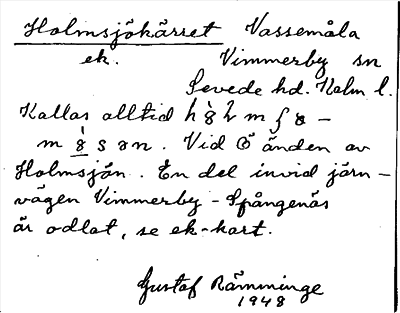 Holmsjökärret Vassemåla
ek. Vimmerby sn
Sevede hd. Kalm l.
Kallas alltid
Vid Ö änden av
Holmsjön. En del invid järn-
vägen Vimmerby - Spångenäs
är odlat, se ek-kart.
Gustaf Rämminge
1948